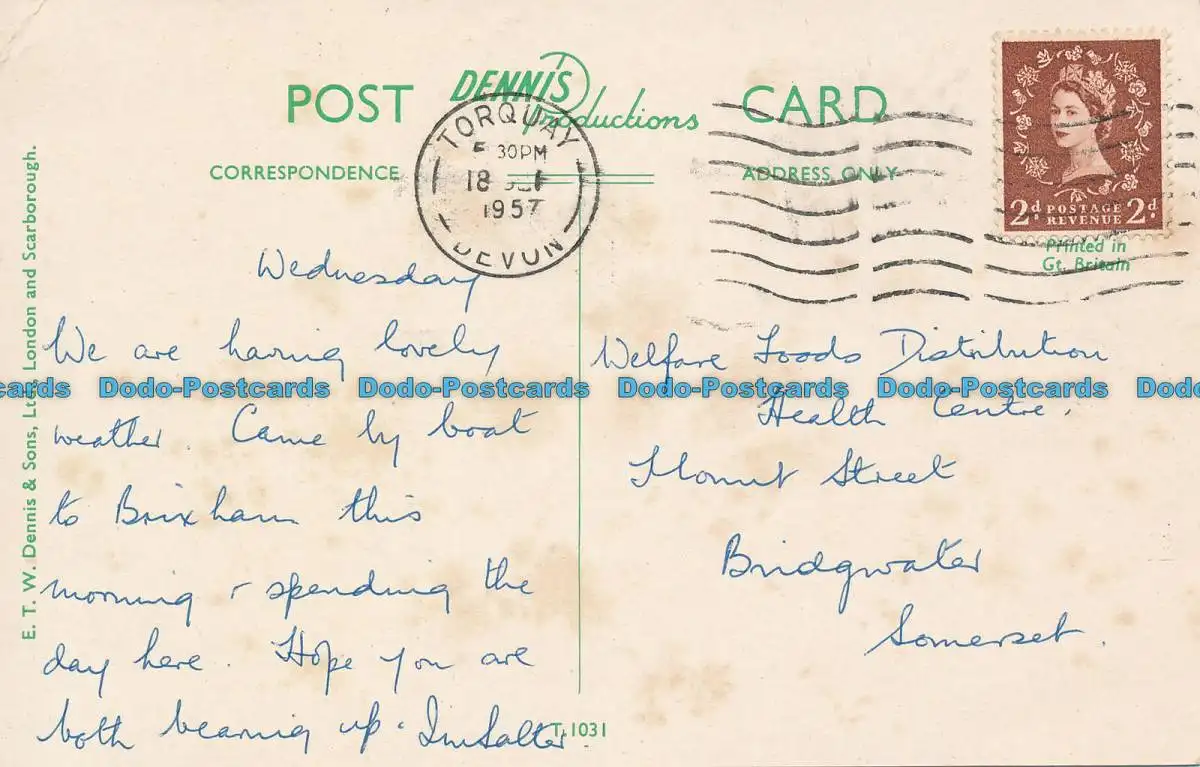 POST DENNIS Productions CARD
CORRESPONDENCE ADDRESS ONLY
TORQUAY
30PM
18
1957
DEVON
2d POSTAGE REVENUE 2d
Printed in
Gt. Britain
E. T. W. Dennis & Sons, Ltd., London and Scarborough.
Wednesday
We are having lovely
weather. Came by boat
to Brixham this
morning & spending the
day here. Hope you are
both bearing up.
Welfare Foods Distribution
Health Centre.
Mount Street
Bridgwater
Somerset.
T.1031
Dodo-Postcards Dodo-Postcards Dodo-Postcards Dodo-Postcards Dodo-Postcards